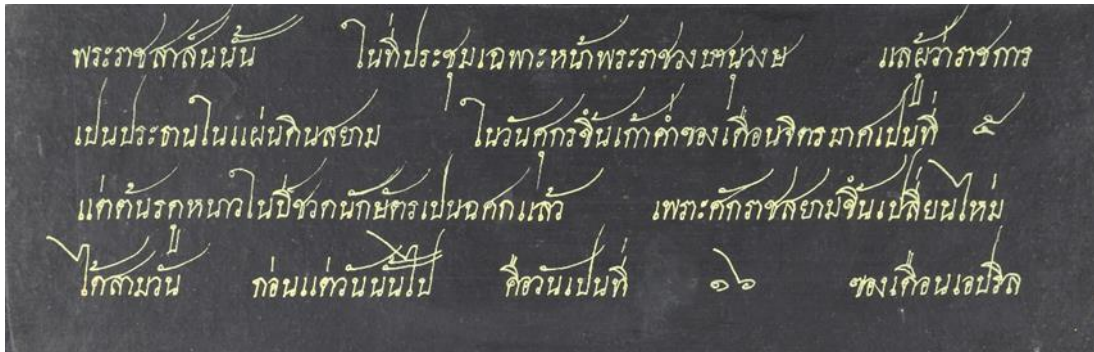 พระราชสาส์นนั้น ในที่ประชุมเฉพาะหน้าพระราชวงษานุวงษ แลผู้ว่าราชการ
เปนประธานในแผ่นดินสยาม ในวันศุกรขึ้นเก้าค่ำของเดือนจิตรมาศเปนที่ ๕
แต่ต้นรดูหนาวในปีชวดนักษัตรเปนฉศกแล้ว เพราะศักราชสยามขึ้นเปลี่ยนใหม่
ได้สามวัน ก่อนแต่วันนั้นไป คือวันเปนที่ ๑๖ ของเดือนเอปริล